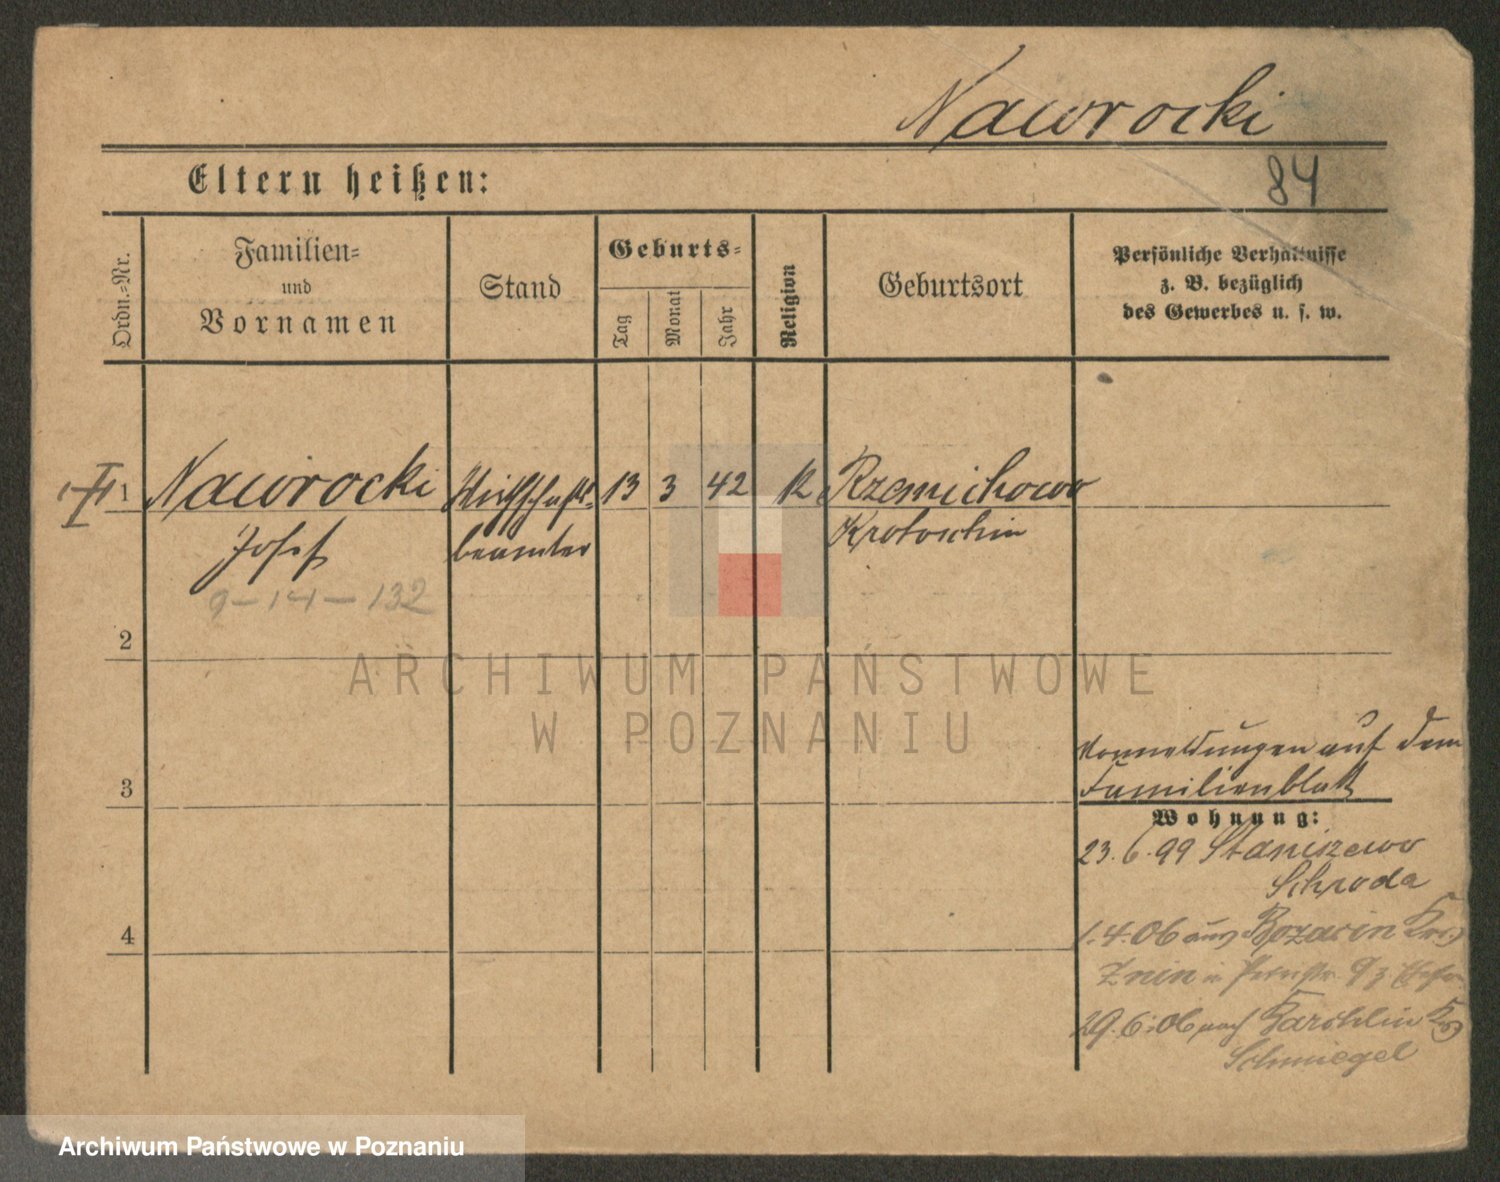 Nawrocki
84
Eltern heißen:
Ordn.-Nr.
Familien-
und
Vornamen
Stand
Geburts-
Tag
Monat
Jahr
Religion
Geburtsort
Persönliche Verhältnisse
z. B. bezüglich
des Gewerbes u. s. w.
1 Nawrocki Wirthschafts- 13 3 42 K Rzemichowo
Josef beamter Krotoschin
9-14-132
2
ARCHIWUM PAŃSTWOWE
W POZNANIU
3
auf dem
Familienblatt
Wohnung:
23.6.99 Staniszewo
Schroda
4
1.4.06 aus Bozacin Krs.
Znin in
29.6.06 nach Karchlin Krs.
Schmiegel
Archiwum Państwowe w Poznaniu